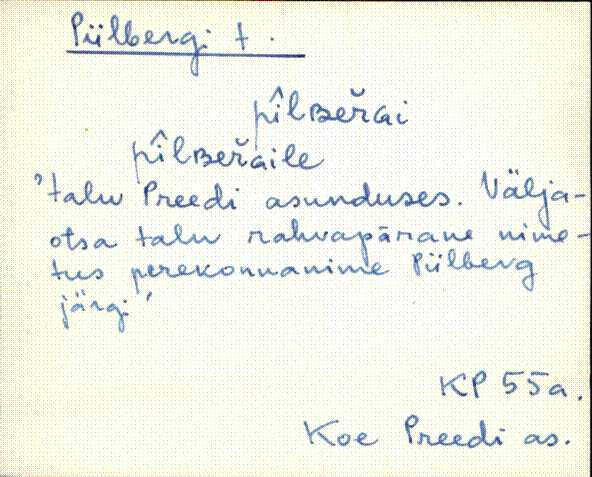 Piilbergi t.
pîlʙeřai
pîlʙeřaile
'talu Preedi asunduses. Välja-
otsa talu rahvapärane nime-
tus perekonnanime Piilberg
järgi'
KP 55a.
Koe Preedi as.